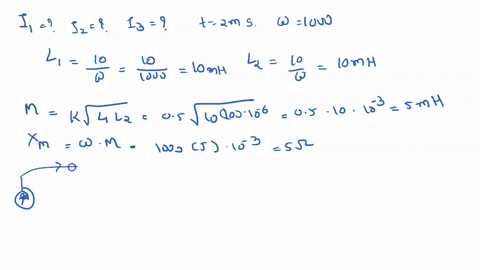 I₁ = ? I₂ = ? I₃ = ? t = 2 m s. ω = 1000
L₁ = 10/ω = 10/1000 = 10 mH L₂ = 10/ω = 10 mH
M = K√L₁L₂ = 0.5 √10·10·10⁻⁶ = 0.5 · 10 · 10⁻³ = 5 mH
Xm = ω · M = 1000 (5) · 10⁻³ = 5Ω